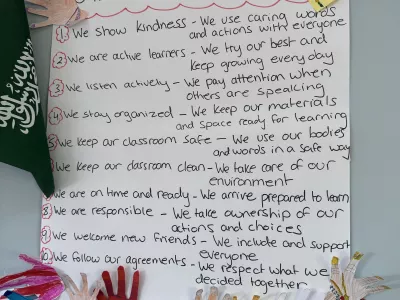 1 We show kindness - We use caring words
and actions with everyone
2 We are active learners - We try our best and
keep growing everyday
3 We listen actively - We pay attention when
others are speaking
4 We stay organized - We keep our materials
and space ready for learning
5 We keep our classroom safe - We use our bodies
and words in a safe way
We keep our classroom clean - We take care of our
environment
7 We are on time and ready - We arrive prepared to learn
8 We are responsible - We take ownership of our
actions and choices
9 We welcome new friends - We include and support
everyone
10 We follow our agreements - We respect what we
decided together